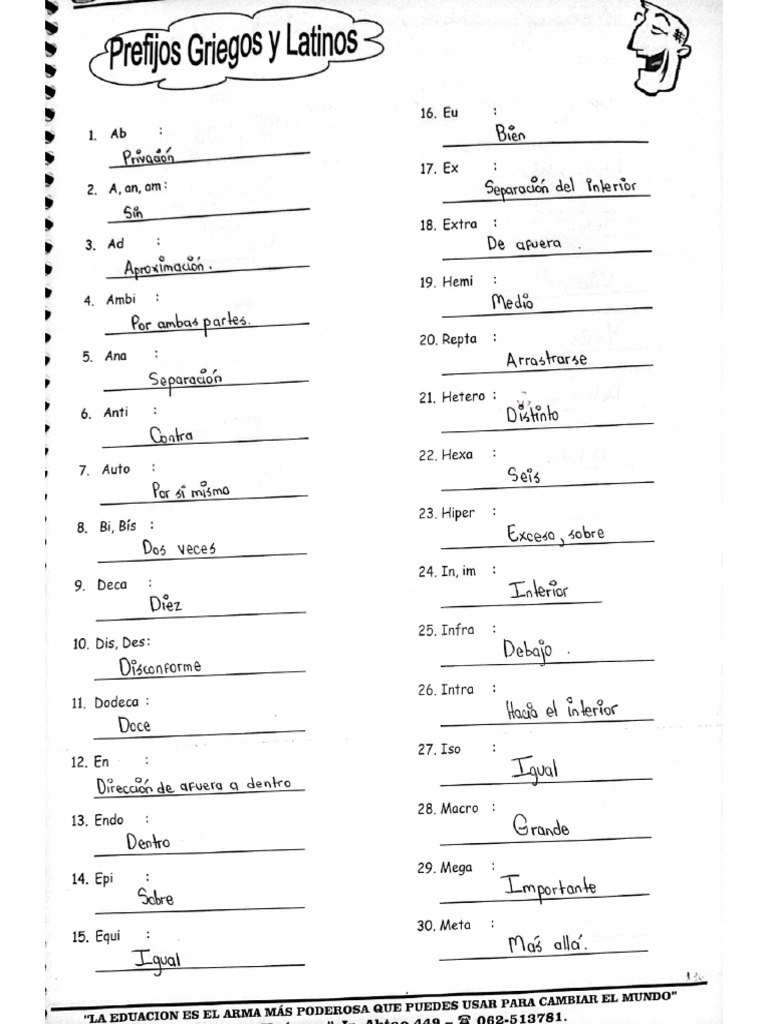 Prefijos Griegos y Latinos
1. Ab :
Privación
2. A, an, am:
Sin
3. Ad :
Aproximación.
4. Ambi :
Por ambas partes.
5. Ana :
Separación
6. Anti :
Contra
7. Auto :
Por sí mismo
8. Bi, Bís :
Dos veces
9. Deca :
Diez
10. Dis, Des:
Disconforme
11. Dodeca :
Doce
12. En :
Dirección de afuera a dentro
13. Endo :
Dentro
14. Epi :
Sobre
15. Equi :
Igual
16. Eu :
Bien
17. Ex :
Separación del interior
18. Extra :
De afuera.
19. Hemi :
Medio
20. Repta :
Arrastrarse
21. Hetero :
Distinto
22. Hexa :
Seis
23. Hiper :
Exceso, sobre
24. In, im :
Interior
25. Infra :
Debajo.
26. Intra :
Hacia el interior
27. Iso :
Igual
28. Macro :
Grande
29. Mega :
Importante
30. Meta :
Más allá.
"LA EDUACION ES EL ARMA MÁS PODEROSA QUE PUEDES USAR PARA CAMBIAR EL MUNDO"
449 – ☎ 062-513781.